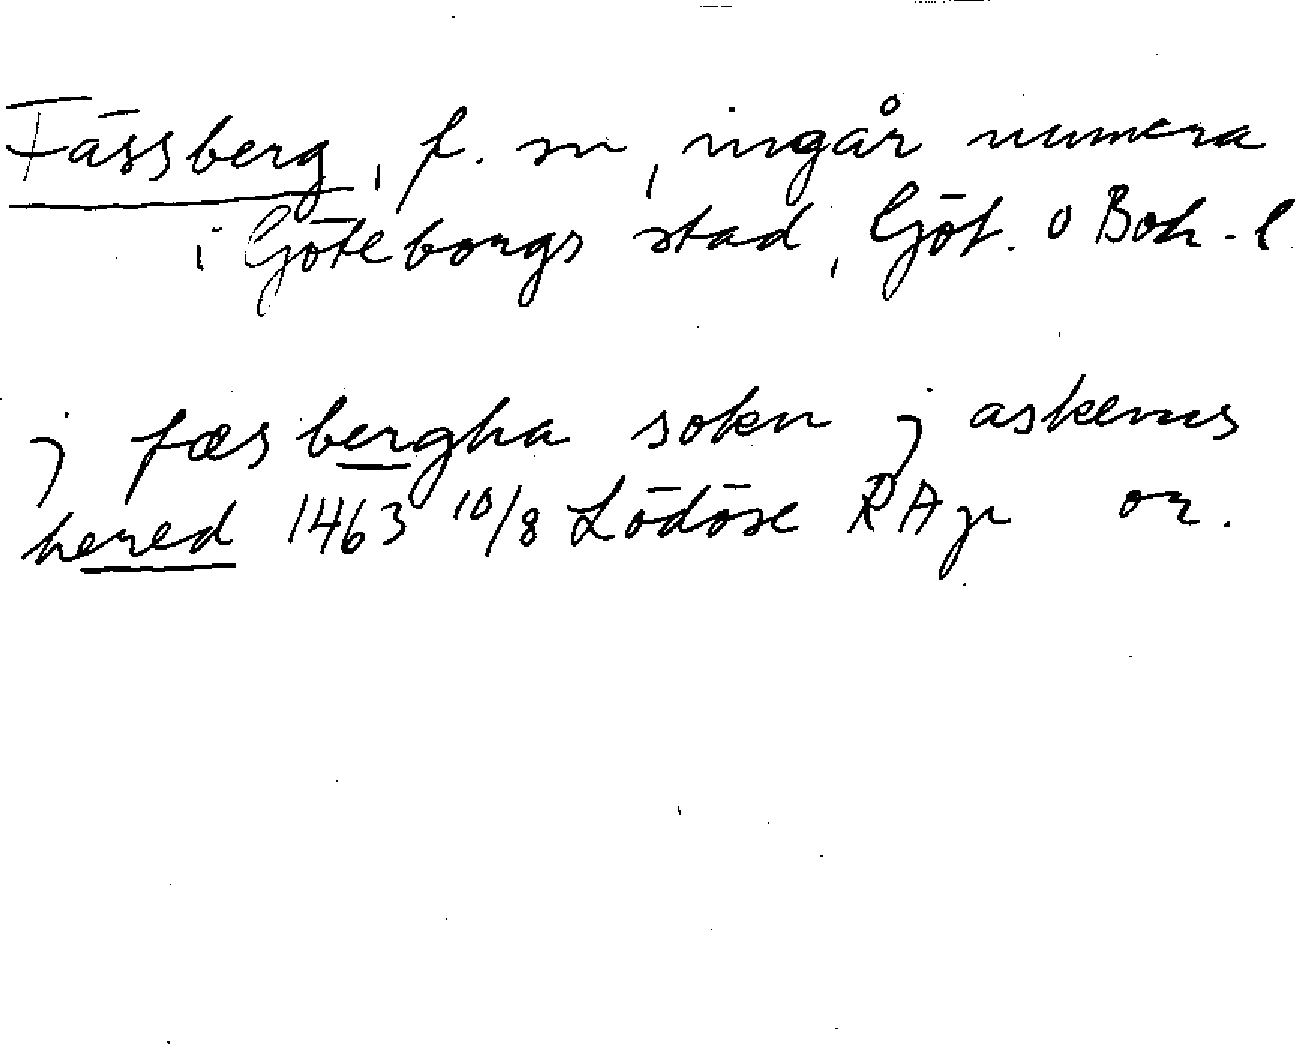 Fässberg, f. sn, ingår numera
i Göteborgs stad, Göt. o Boh. l
j fæsbergha sokn j askems
hered 1463 10/8 Lödöse RAp or.